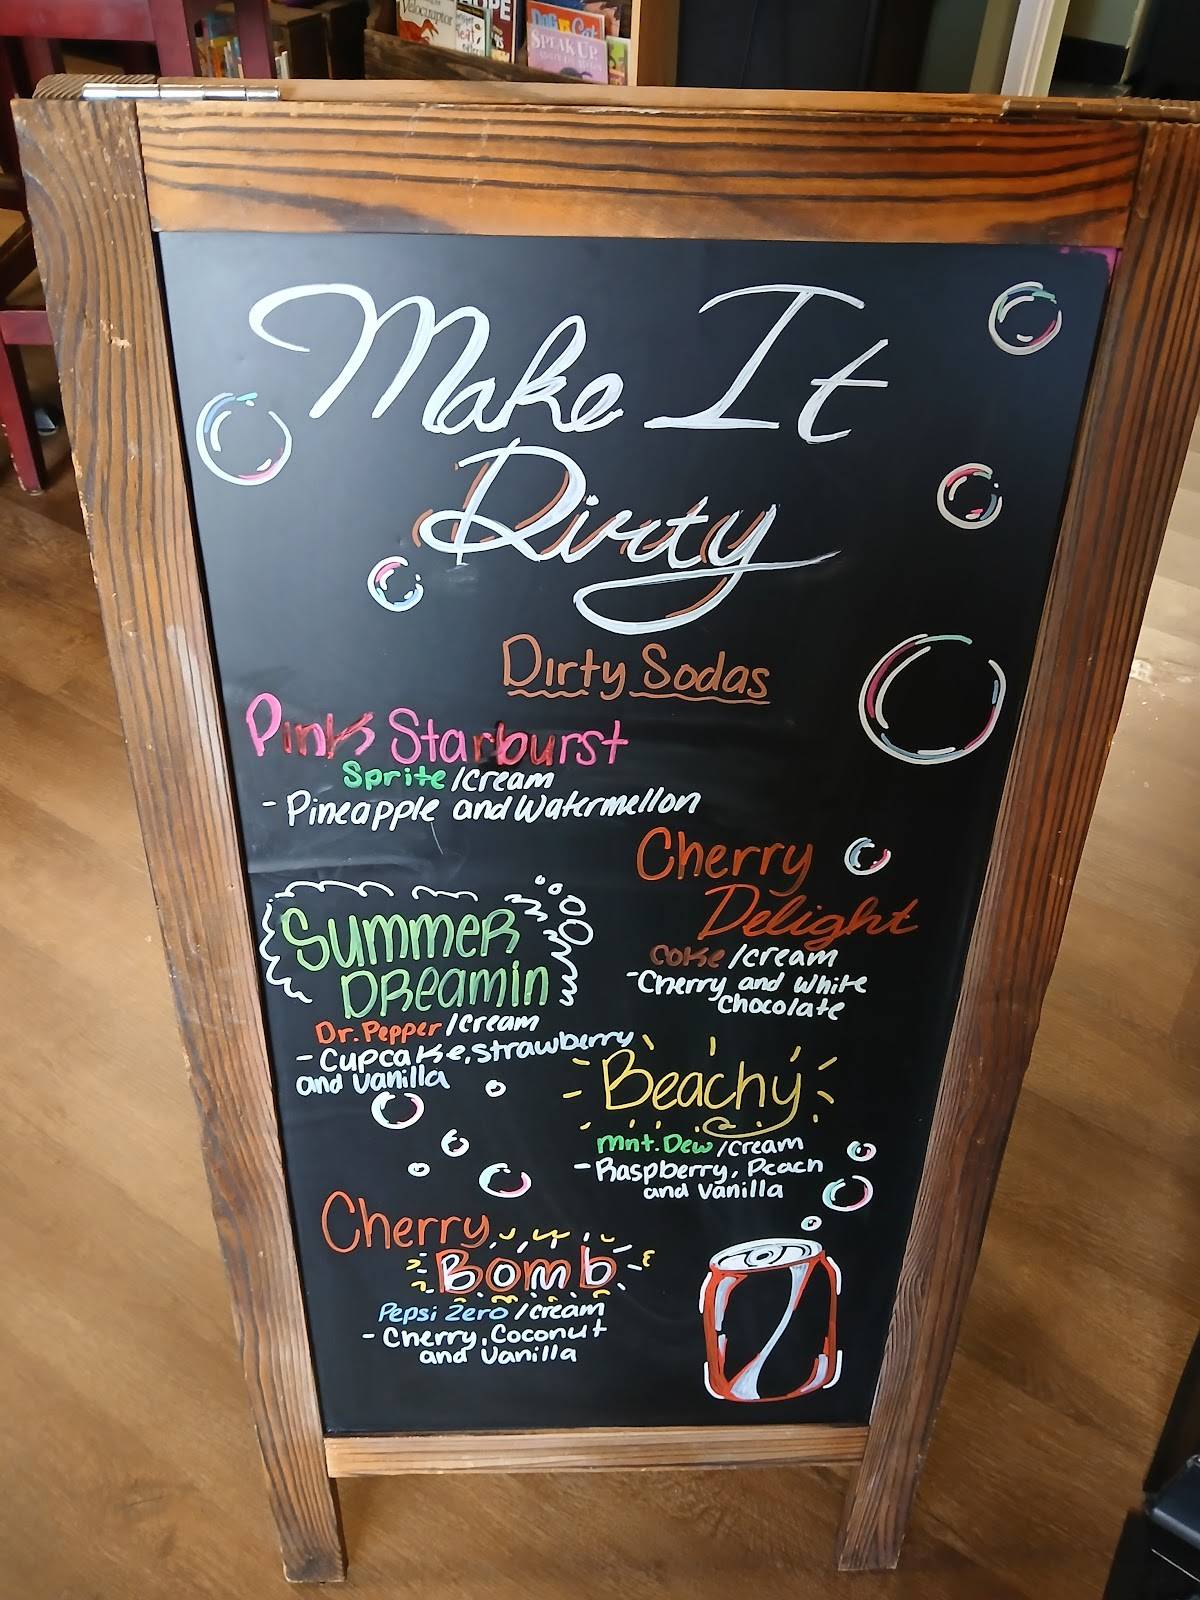 Velociraptor
Dog vs. Cat
SPEAK UP,
Make It
Dirty
Dirty Sodas
Pink Starburst
Sprite/cream
- Pineapple and Watermellon
Cherry
Delight
Coke/cream
-Cherry and White
Chocolate
Summer
Dreamin
Dr. Pepper/cream
- Cupcake, strawberry
and vanilla
Beachy
mnt. Dew/cream
- Raspberry, Peach
and vanilla
Cherry
Bomb
Pepsi Zero/cream
- Cherry, Coconut
and vanilla